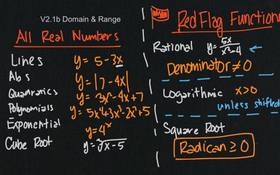 V2.1b Domain & Range
All Real Numbers
Lines y = 5 - 3x
Abs y = |7 - 4x|
Quadratics y = 3x² - 4x + 7
Polynomials y = 5x⁴ + 3x³ - 2x² + 5
Exponential y = 4ˣ
Cube Root y = ∛x - 5
Red Flag Function
Rational y = 5x / x² - 4
Denominator ≠ 0
Logarithmic x > 0
unless shifted
Square Root
Radican ≥ 0